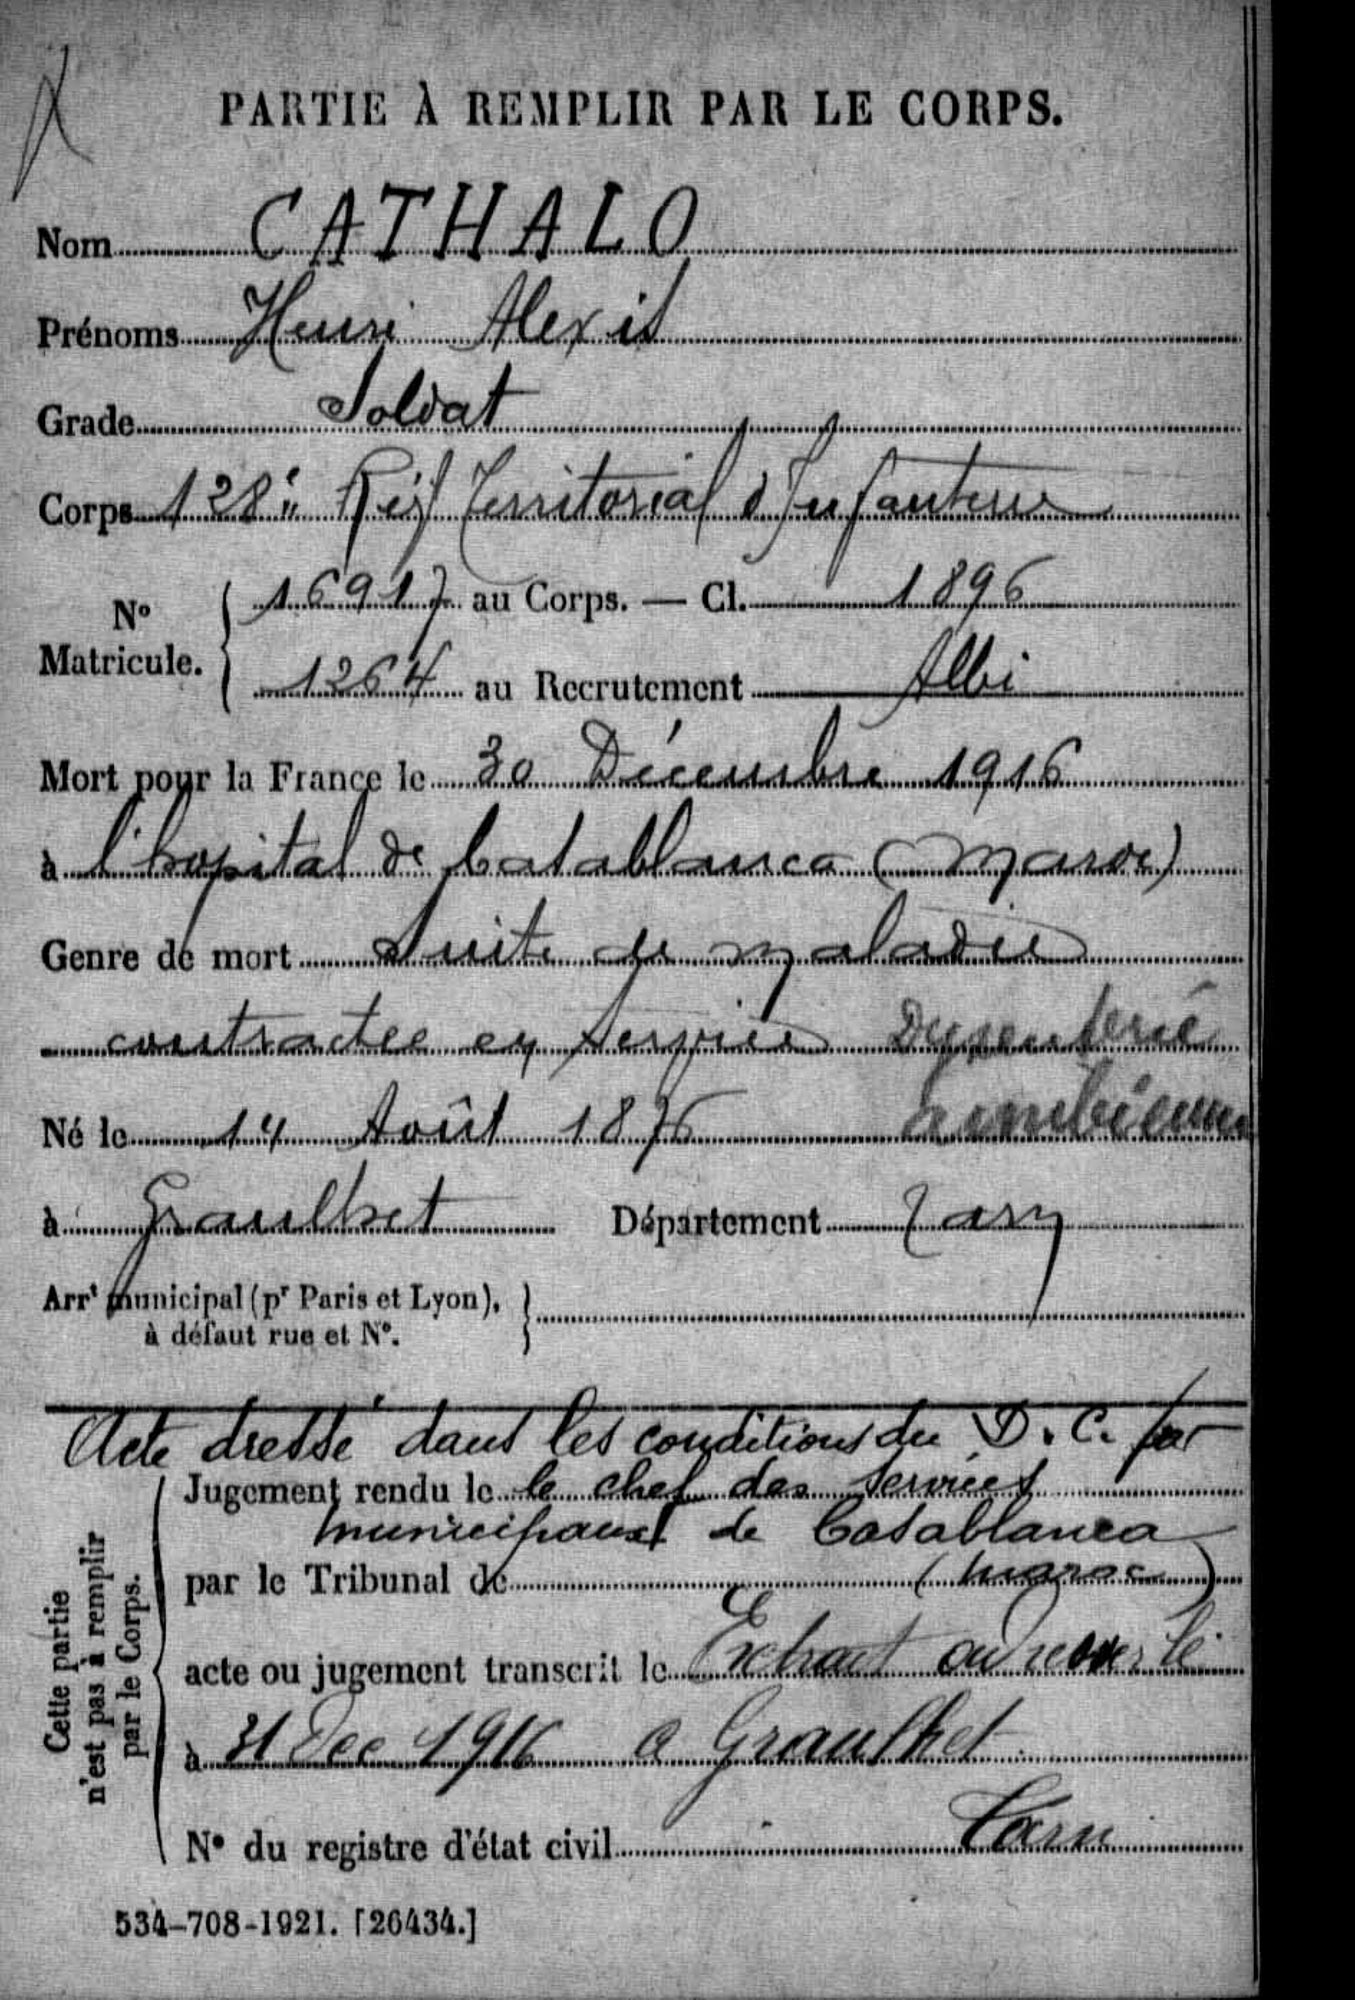 PARTIE À REMPLIR PAR LE CORPS.
Nom CATHALO
Prénoms Henri Alexis
Grade Soldat
Corps 128e Rég Territorial d'Infanterie
N° Matricule. 16917 au Corps. — Cl. 1896
1264 au Recrutement Albi
Mort pour la France le 30 Décembre 1916
à l'hopital de Casablanca (Maroc)
Genre de mort Suite de maladie
contractée en service Dysenterie
amibienne
Né le 14 Août 1876
à Graulhet Département Tarn
Arrt municipal (pr Paris et Lyon),
à défaut rue et N°.
Acte dressé dans les conditions du D. C. par
Jugement rendu le le chef des services
municipaux de Casablanca
par le Tribunal de (Maroc)
acte ou jugement transcrit le Extrait adressé le
à 31 Dec 1916 a Graulhet
N° du registre d'état civil Tarn
Cette partie
n'est pas à remplir
par le Corps.
534-708-1921. [26434.]